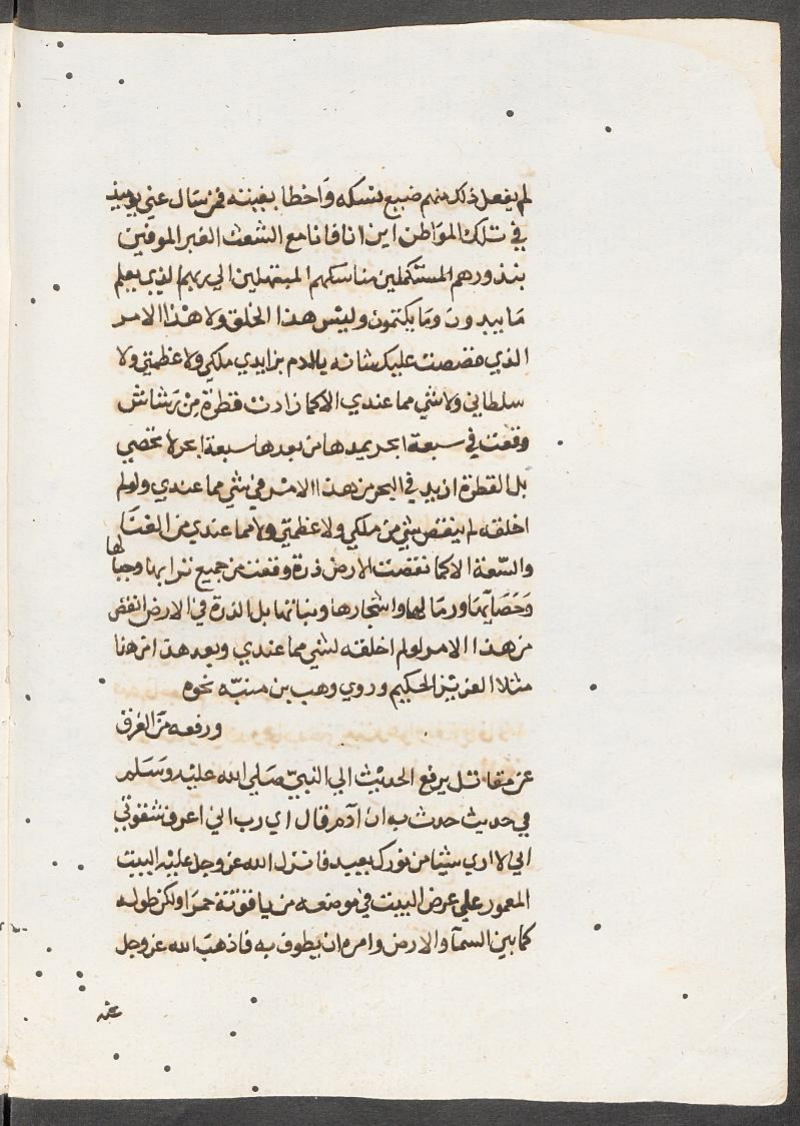 لم يفعل ذلك منهم ضيع نسكه وَاخطا بغيته فمن سَال عني يوميذ
في تلك الموَاطن اين انا فانا مع الشعث الغبر الموفين
بنذورهم المستكملين مناسكهم المبتهلين الي ربهم الذي يعلم
مَا يبدون وَمَا يكتمون وليسَ هذا الخلق ولا هذا الامر
الذي قصصت عليك شانه يا ادم بزايدي ملكي ولا عظمتي ولا
سلطاني ولا شي مما عندي الا كما زادت قطرة مِن رَشاش
وقعت في سبعة ابحر يمدها من بعدها سبعة ابحر لا تحصي
بل القطرة ازيد في البحر من هذا الامر في شي مما عندي ولو لم
اخلقه لم ينقص شي من ملكي ولا عظمتي ولا مما عندي من الغنَا
والسّعة الا كما نقصت الارض ذرة وقعت من جميع ترابها وجبالها
وَحَصَايَهَا ورمَالها واشجارها ونباتها بل الذرة في الارض انقص
من هذا الامر لو لم اخلقه لشي مما عندي وبعد هذا من هنا
مثلا العزيز الحكيم وروي وهب بن منبّه نحوه
ورفعه من الغرق
عن مقاتل يرفع الحديث الي النبيّ صَلي الله عليْه وسَلم
في حديث حدث به ان آدم قال اي رب اني اعرف شقوتي
اني لا اري شيئا من نورك بعيد فانزل الله عز وجل عليْه البيت
المعمور علي عرض البيت في موضعه من ياقوتة حمرَا ولكن طوله
كما بين السمآ والارض وامره ان يطوف به فاذهبَ الله عز وجل
عنه